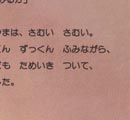 まは、さむい さむい。
くん ずっくん ふみながら、
も ためいき ついて、
た。